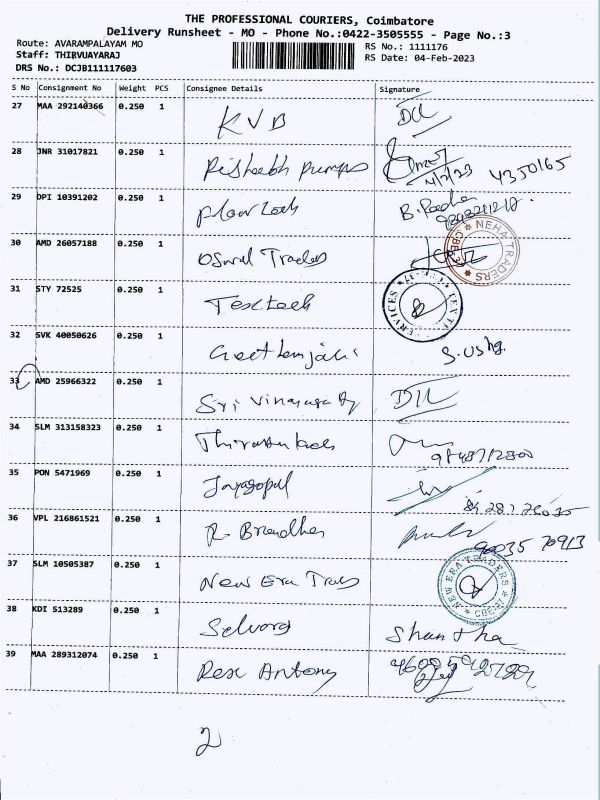 THE PROFESSIONAL COURIERS, Coimbatore
Delivery Runsheet - MO - Phone No.:0422-3505555 - Page No.:3
Route: AVARAMPALAYAM MO
RS No.: 1111176
Staff: THIRVUAYARAJ
RS Date: 04-Feb-2023
DRS No.: DCJB111117603
S No Consignment No Weight PCS Consignee Details Signature
27 MAA 292140366 0.250 1 KVB
28 JNR 31017821 0.250 1 Rishabh pumps 4/2/23 4350165
29 DPI 10391202 0.250 1 B. Radha
30 AMD 26057188 0.250 1 Oswal Traders NEHA TRADERS CBE
31 STY 72525 0.250 1 Textech
32 SVK 40050626 0.250 1 Geethanjali S. Usha
33 AMD 25966322 0.250 1 Sri Vinayaga
34 SLM 313158323 0.250 1
35 PON 5471969 0.250 1 Jayagopal
36 VPL 216861521 0.250 1 R. 90035 70913
37 SLM 10505387 0.250 1 New Era Trads NEW ERA TRADERS CBE-27
38 KDI 513289 0.250 1 Selvaraj Shantha
39 MAA 289312074 0.250 1 Rex Antony
2